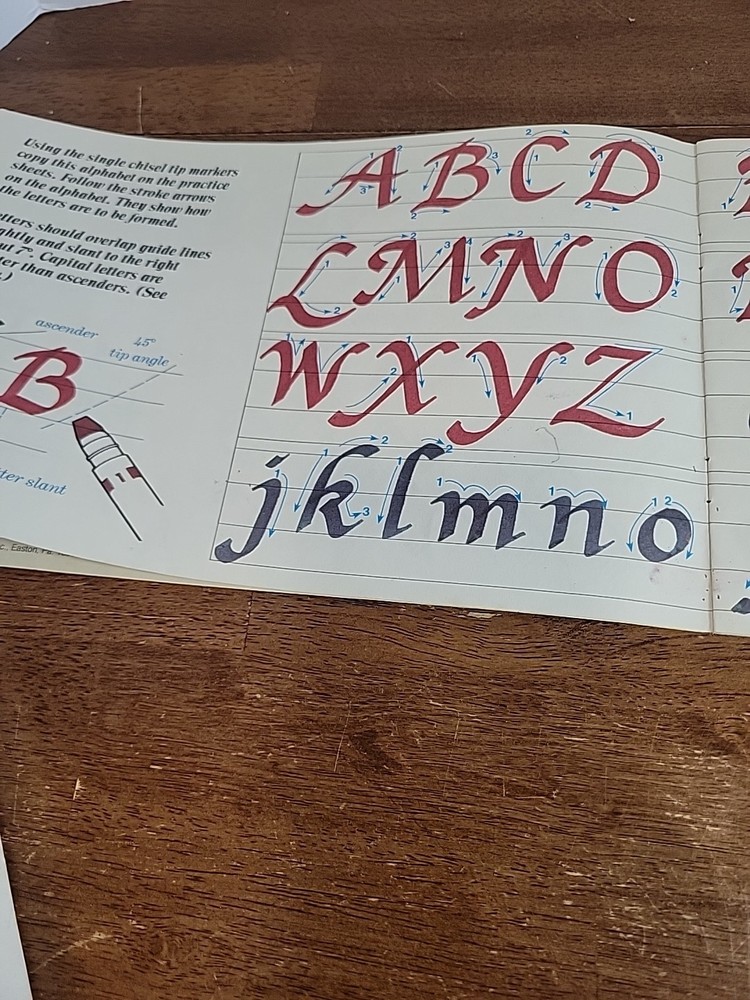 Using the single chisel tip markers
copy this alphabet on the practice
sheets. Follow the stroke arrows
on the alphabet. They show how
the letters are to be formed.
etters should overlap guide lines
ghtly and slant to the right
ut 7°. Capital letters are
ter than ascenders. (See
.)
ascender
45°
tip angle
B
ter slant
c., Easton, Pa.
A B C D
L M N O
W X Y Z
j k l m n o